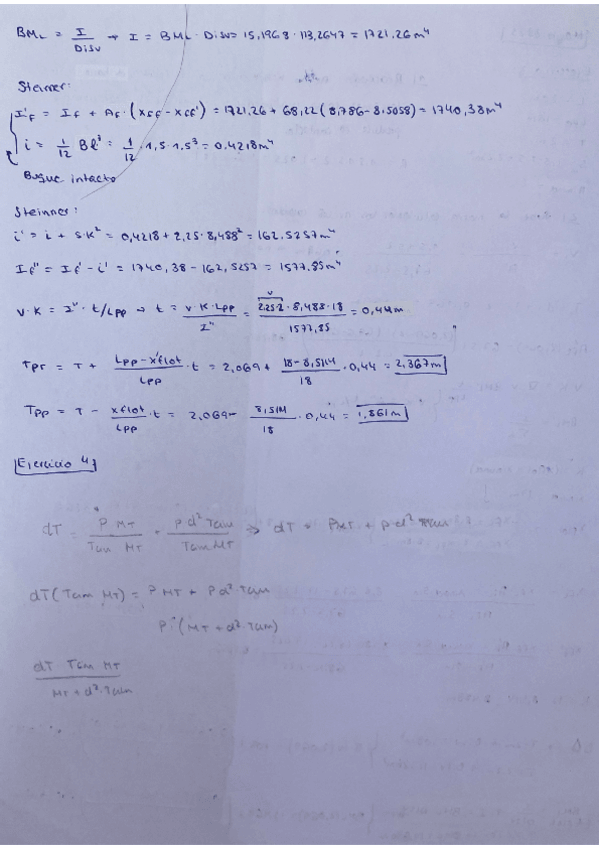 BM_L = I / Disv → I = BM_L · Disv = 15,1968 · 113,2647 = 1721.26 m⁴
Steiner:
I'_F = I_F + A_F · (X_FF - X_FF') = 1721,26 + 68,22 (8,786 - 8,5058) = 1740,38 m⁴
i = 1/12 Bl³ = 1/12 · 1,5 · 1.5³ = 0.4218 m⁴
Buque intacto
Steinner:
i' = i + S·K² = 0,4218 + 2,25 · 8,488² = 162.5257 m⁴
I_F'' = I_F' - i' = 1740,38 - 162,5257 = 1577.85 m⁴
v·K = I'' · t/Lpp → t = v·K·Lpp / I'' = 2,25·2 · 8,488 · 18 / 1577,85 = 0,44 m
v
Tpr = T + Lpp - x'flot / Lpp · t = 2,069 + 18 - 8,514 / 18 · 0,44 = 2,367 m
Tpp = T - xflot / Lpp · t = 2,069 - 8,514 / 18 · 0,44 = 1,861 m
Ejercicio 4
dT = P MT / Tam MT + P d² Tam / Tam MT ⇒ dT = P MT + P d² Tam
dT (Tam MT) = P MT + P d² Tam
P · (MT + d² · Tam)
dT Tam MT / MT + d² · Tam